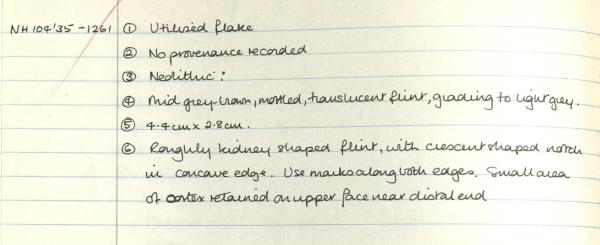 NH 104'35 - 1261 ① Utilised flake
② No provenance recorded
③ Neolithic :
④ Mid grey-brown, mottled, translucent flint, grading to light grey.
⑤ 4.4cm x 2.8cm.
⑥ Roughly kidney shaped flint, with crescent shaped notch
in concave edge. Use marks along both edges. Small area
of cortex retained on upper face near distal end